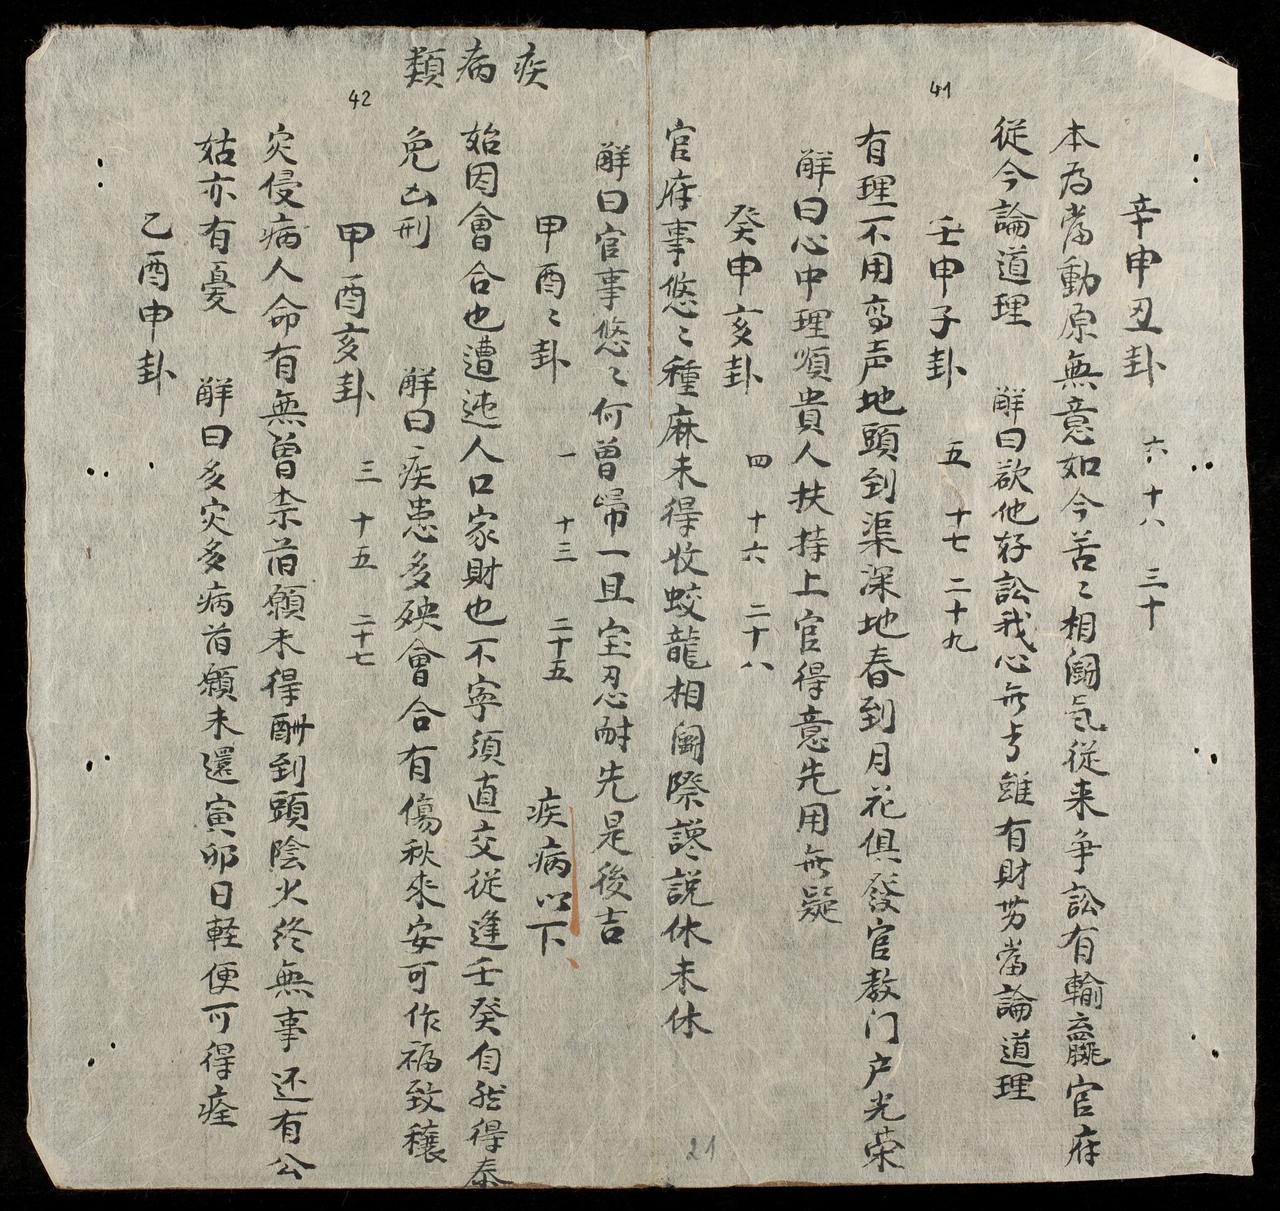 41
辛申丑卦 六 十八 三十
本為當動原無意如今苦〻相鬪気從来争訟有輸贏官府
從今論道理 解曰欲他好訟我心無亏雖有財劳當論道理
壬申子卦 五 十七 二十九
有理不用高声地頭到渠深地春到月花俱發官教门户光荣
解曰心中理順貴人扶持上官得意先用無疑
癸申亥卦 四 十六 二十八
官府事悠〻種麻未得收蛟龍相鬪際讒說休未休
解曰官事悠〻何曾歸一且宝忍耐先是後吉
疾病類
42
甲酉〻卦 一 十三 二十五 疾病以下
始因會合也遭迍人口家財也不寜須直交從逢壬癸自然得泰
免凶刑 解曰疾患多殃會合有傷秋來安可作福致穰
甲酉亥卦 三 十五 二十七
灾侵病人命有無曾柰首願未得酬到頭陰火终無事还有公
姑亦有憂 解曰多灾多病首願未還寅卯日軽便可得痊
乙酉申卦
21